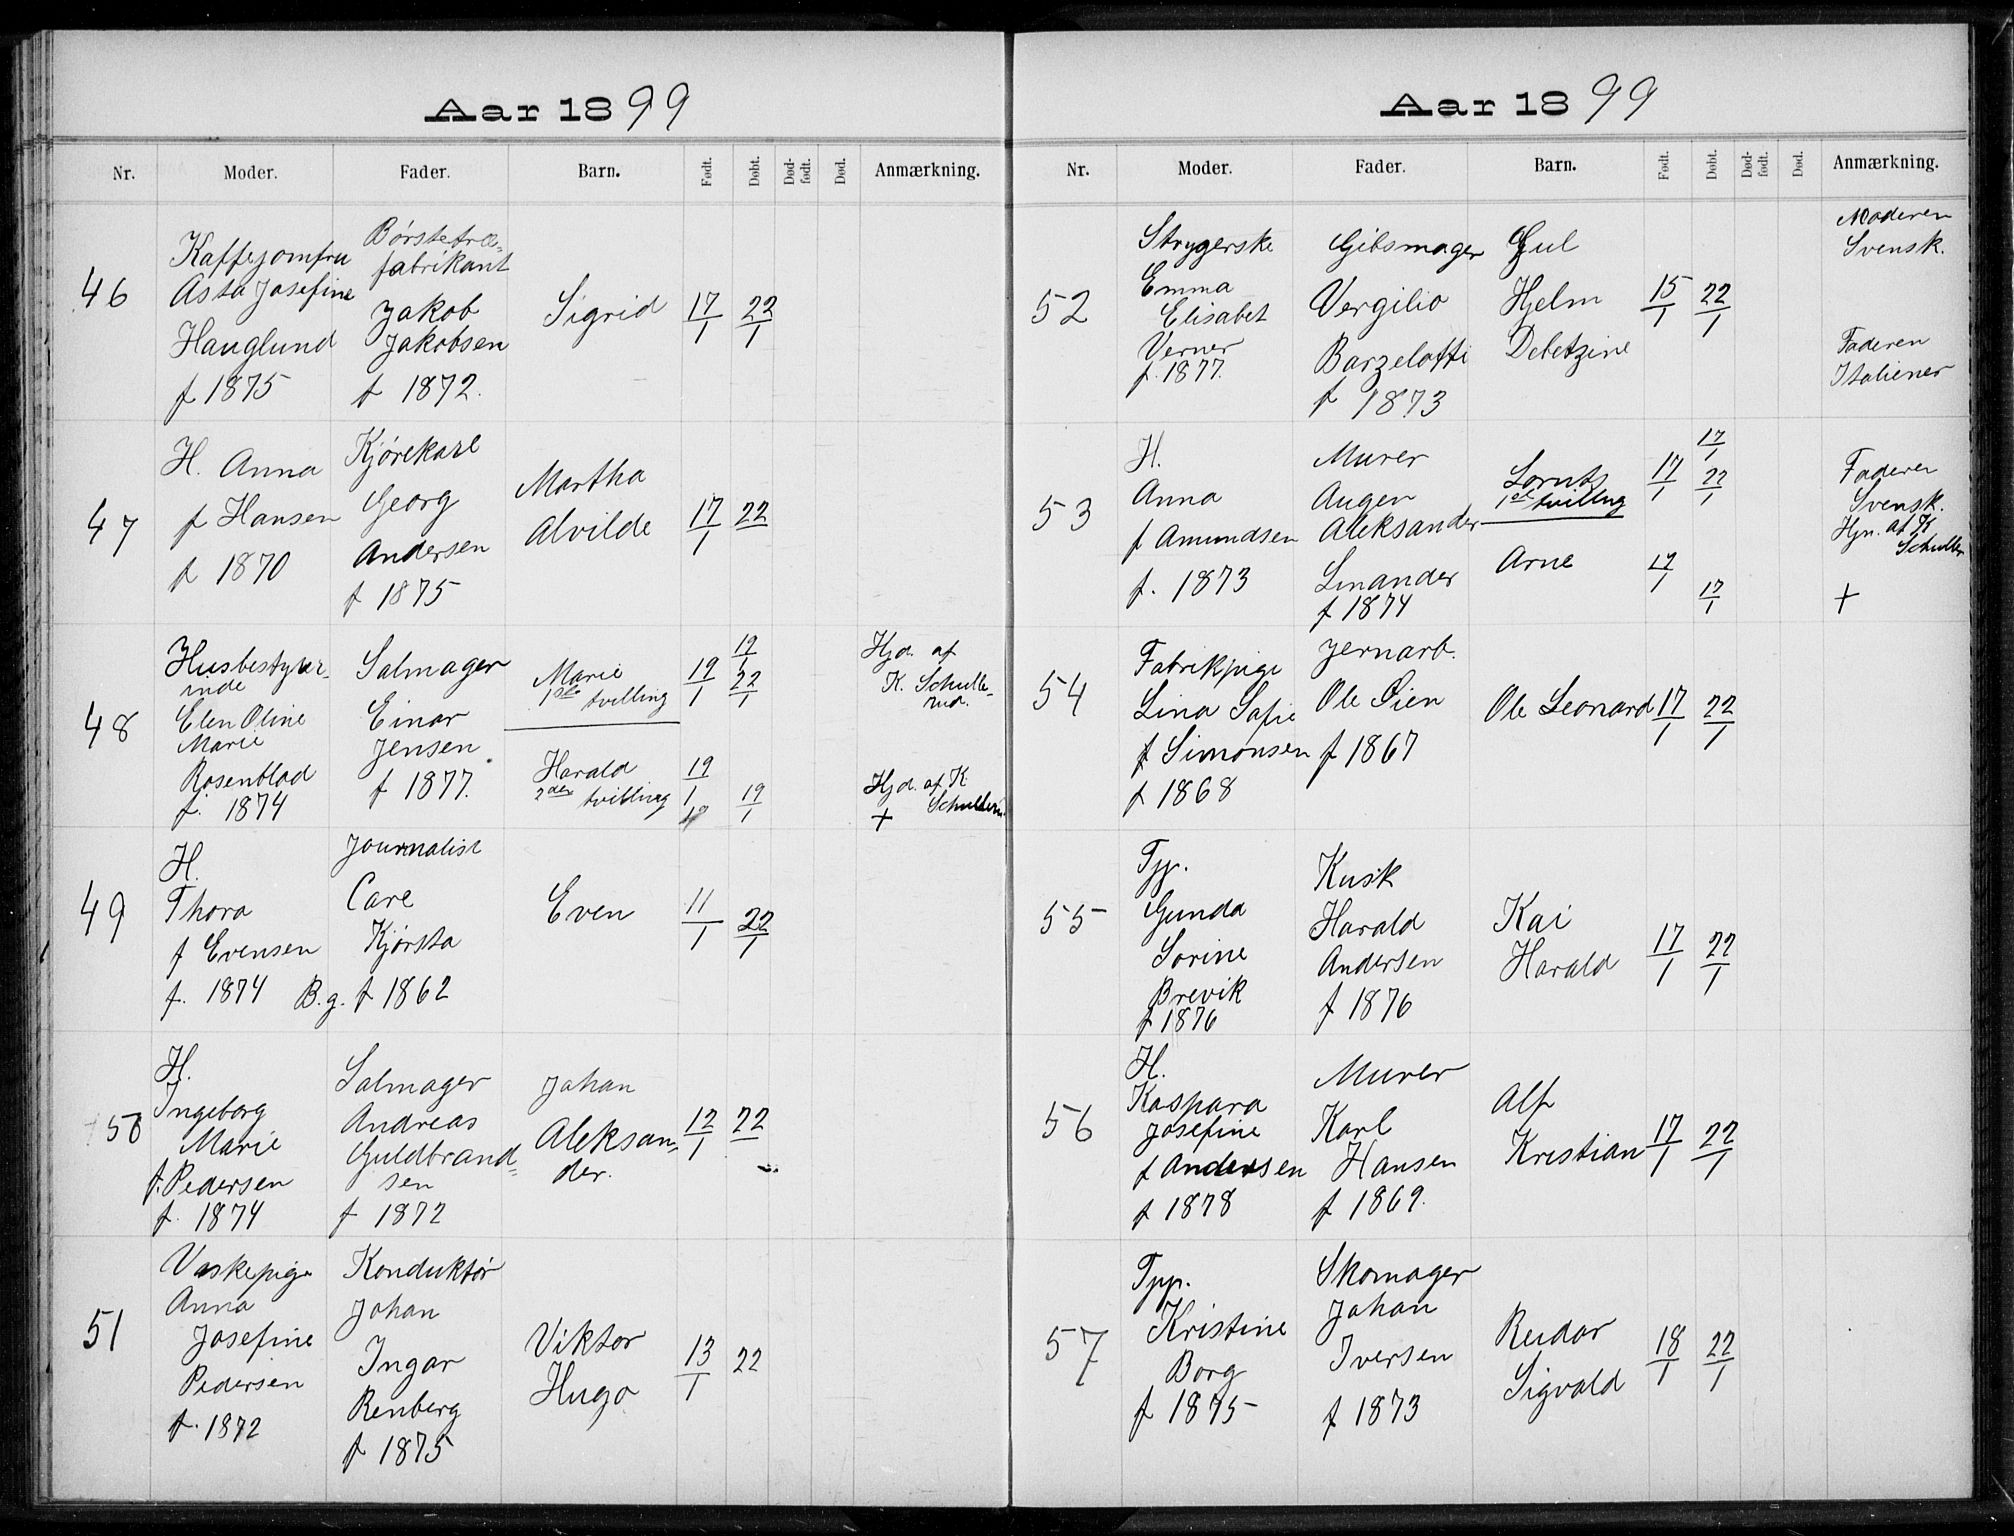 Aar 1899
Nr. Moder. Fader. Barn. Født. Døbt. Død-født. Død. Anmærkning.
46
Kaffejomfru
Asta Josefine
Hauglund
f 1875
Børstetræ-
fabrikant
Jakob
Jakobsen
f 1872.
Sigrid
17/1
22/1
47
H. Anna
f Hansen
f 1870
Kjørekarl
Georg
Andersen
f 1875
Martha
Alvilde
17/1
22
48
Husbestyrer-
inde
Elen Oline
Marie
Rosenblad
f. 1874
Salmager
Einar
Jensen
f 1877.
Marie
1ste tvilling
19/1
19/1
22/1
Hjd. af
K. Schulle-
rud.
Harald
2den tvilling
19/1
19/1
Hjd. af K.
Schullerud
+
49
H.
Thora
f Evensen
f. 1874
B.g.
Journalist
Care
Kjørsta
f 1862
Even
11/1
22/1
50
H.
Ingeborg
Marie
f. Pedersen
f. 1874
Salmager
Andreas
Guldbrand-
sen
f 1872
Johan
Aleksan-
der.
12/1
22
51
Vaskepige
Anna
Josefine
Pedersen
f. 1872
Konduktør
Johan
Ingar
Renberg
f 1875
Viktor
Hugo
13/1
22
Aar 1899
Nr. Moder. Fader. Barn. Født. Døbt. Død-født. Død. Anmærkning.
52
Strygerske
Emma
Elisabet
Verner
f. 1877.
Gibsmager
Vergilio
Barzelotti
f 1873
Gul
Hjelm
Debetzine
15/1
22/1
Moderen
Svensk.
Faderen
Italiener
53
H.
Anna
f Amundsen
f. 1873
Murer
Augen
Aleksander
Linander
f 1874
Lornts
1ste tvilling
17/1
17/1
22/1
Faderen
Svensk.
Hjn. af K
Schuller
Arne
17/1
17/1
+
54
Fabrikpige
Lina Sofie
f Simonsen
f 1868
Jernarb.
Ole Oien
f 1867
Ole Leonard
17/1
22/1
55
Tjp.
Gunda
Sorine
Brevik
f 1876
Kusk
Harald
Andersen
f 1876
Kai
Harald
17/1
22/1
56
H.
Kaspara
Josefine
f Andersen
f 1878
Murer
Karl
Hansen
f 1869.
Alf
Kristian
17/1
22/1
57
Tjp.
Kristine
Borg
f 1875
Skomager
Johan
Iversen
f 1873
Reidar
Sigvald
18/1
22/1